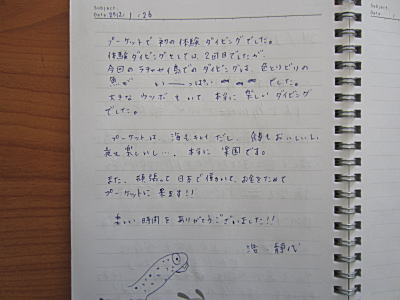 Subject:
Date: 2012. 1. 26
プーケットで初の体験ダイビングでした。
体験ダイビングとしては、2回目でしたが
今回のラチャヤイ島でのダイビングは、色とりどりの
魚が い――っぱい でした。
大きなウツボもいて、本当に楽しいダイビング
でした。
プーケットは、海もきれいだし、食もおいしいし、
夜も楽しいし…、本当に楽園です。
また、頑張って日本で働いて、お金をためて
プーケットに来ます!!
楽しい時間をありがとうございました!!
浩・静代
Subject:
Date